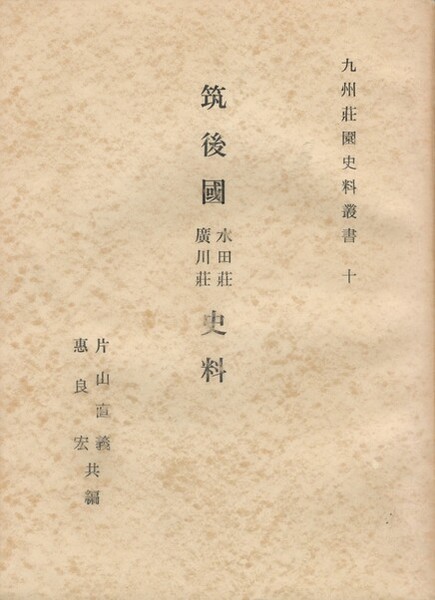 九州莊園史料叢書 十
筑後國 水田莊 廣川莊 史料
片山直義
惠良宏 共編